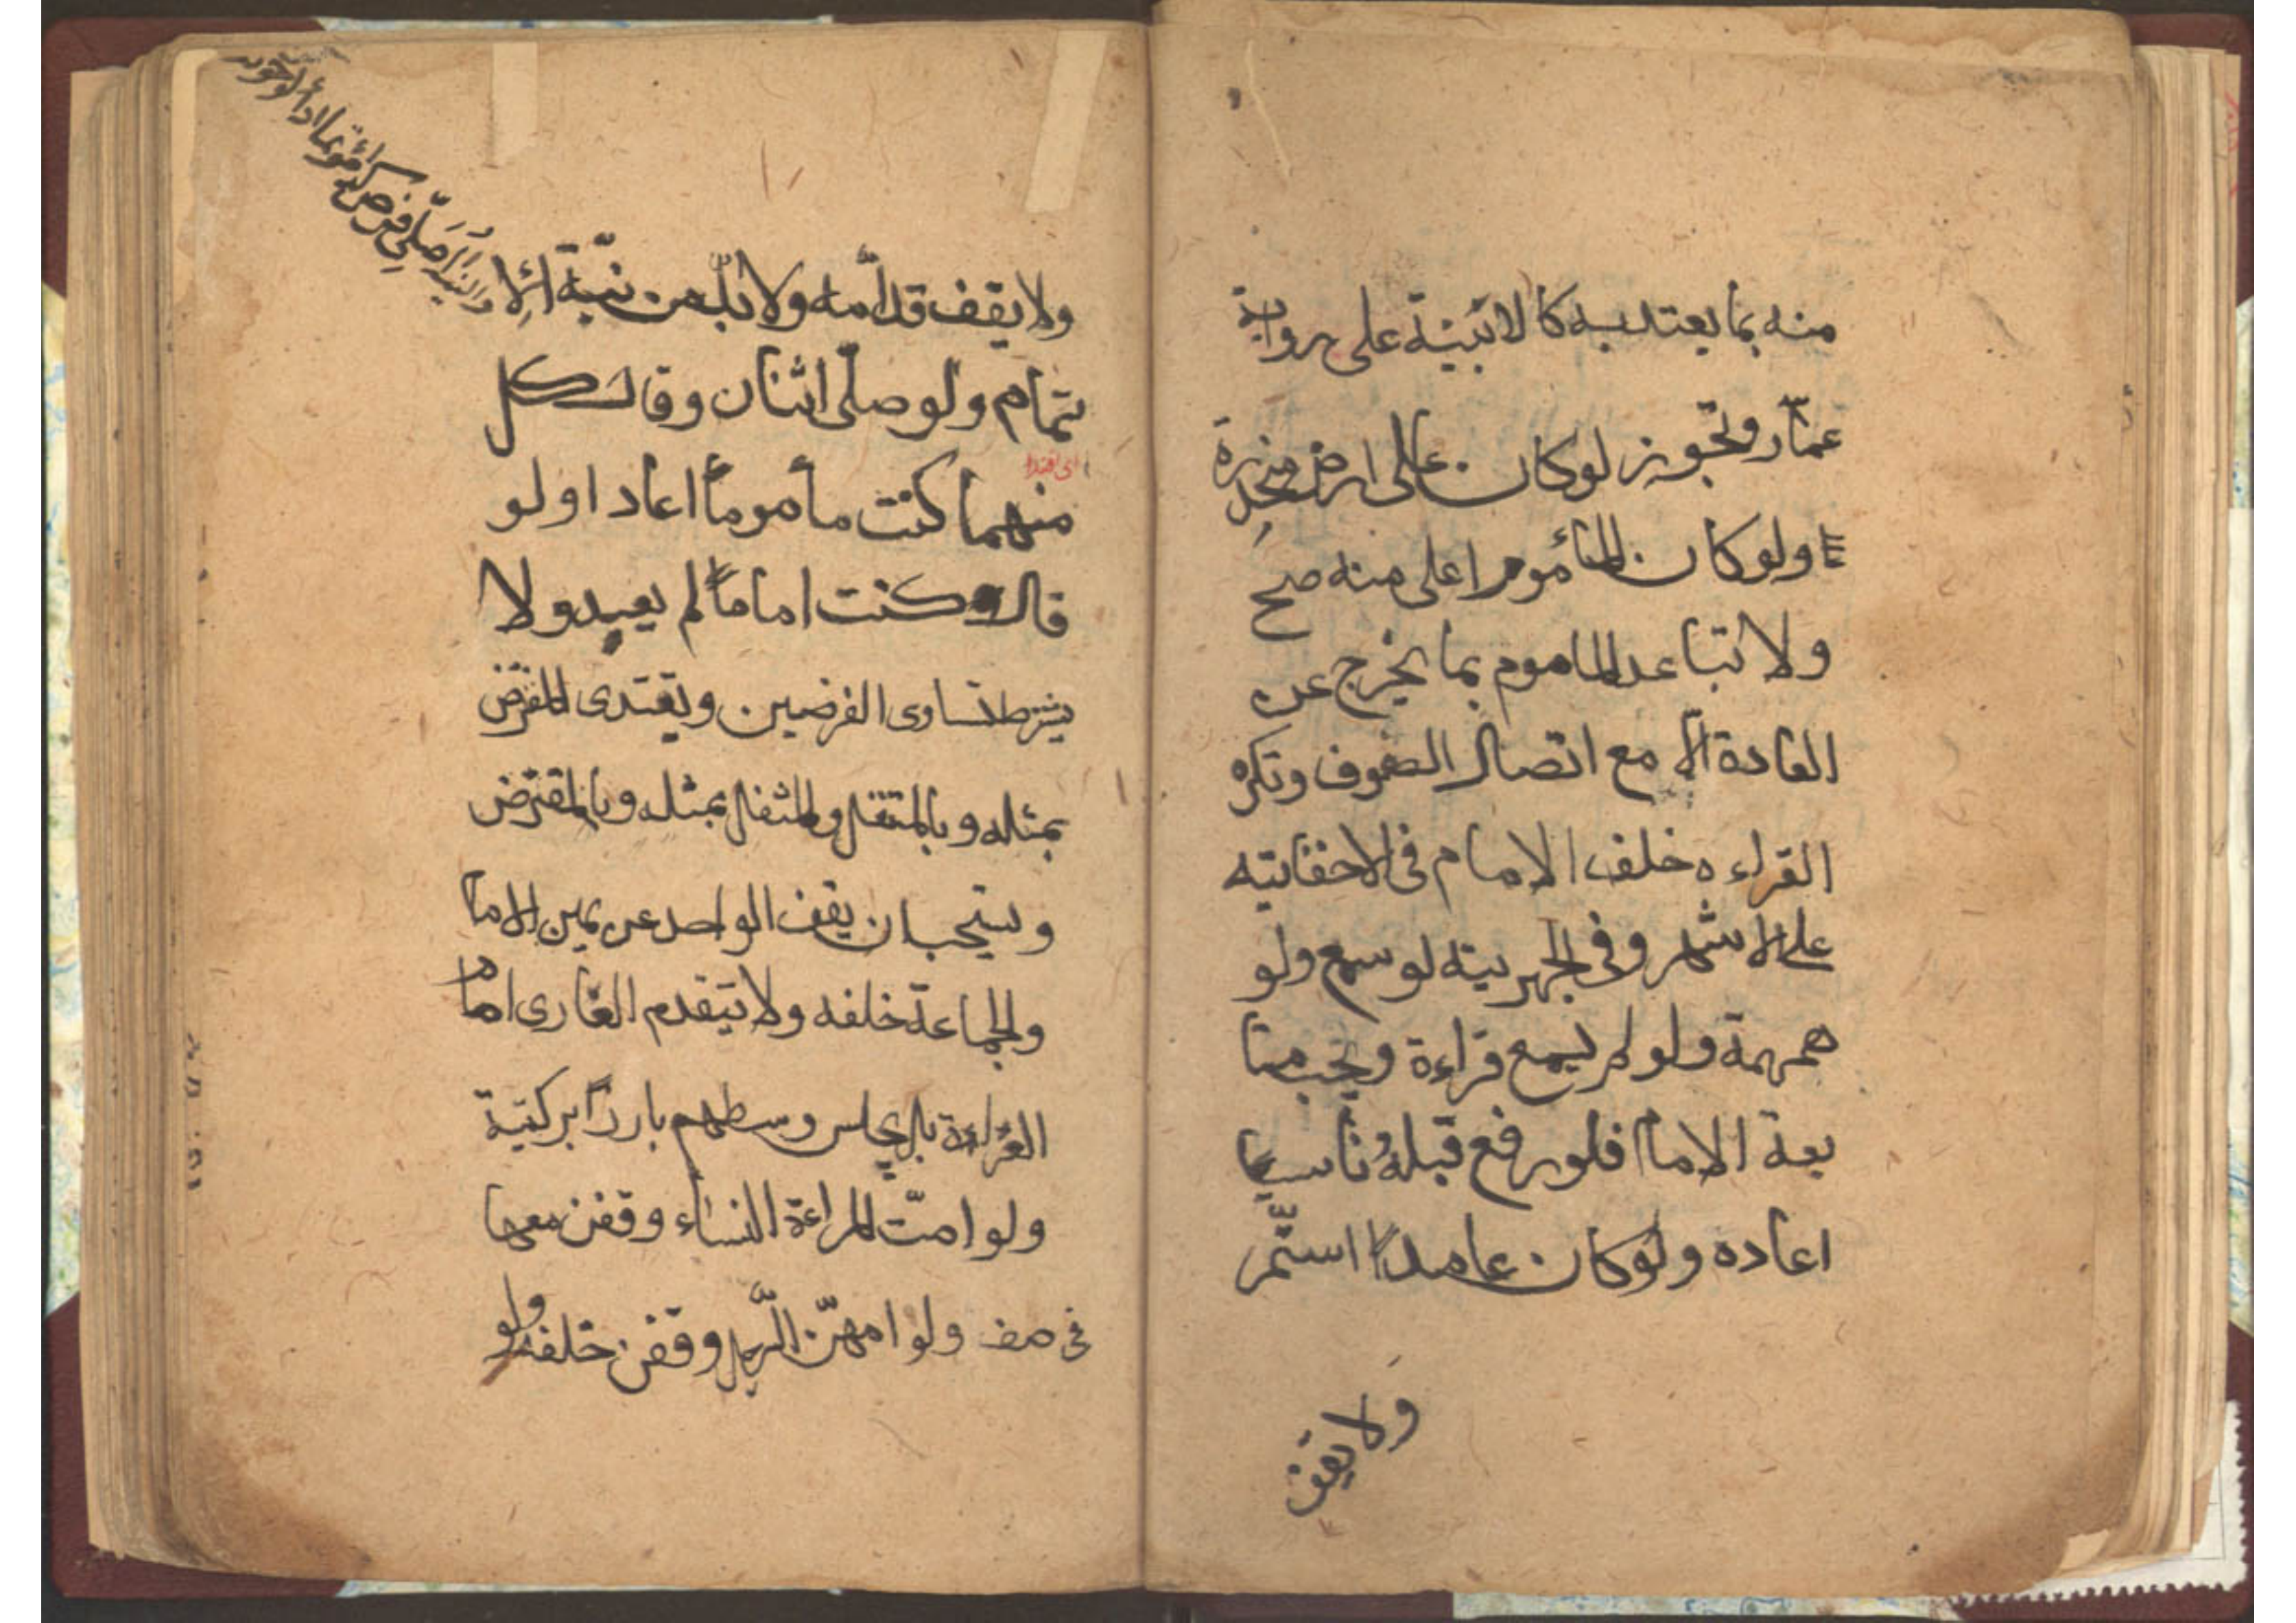 منه بما يعتد به كالابنية على رواية
عمّار وتجوز لو كان على ارض منحدرة
ولو كان المأموم اعلى منه صح
ولا تباعد الماموم بما يخرج عن
العادة الّا مع اتصال الصفوف وتكره
القراءه خلف الامام فى الاخفاتيه
على الاشهر وفى الجهريته لو سمع ولو
همهمة ولو لم يسمع قراءة ويجب متا
بعة الامام فلو رفع قبلهُ ناسيا
اعاده ولو كان عامداً استمّر
ولا يقف
ولا يقف قدّامه ولا بدّ من نيّة ائلا
تمام ولو صلّى اثنان وقال كل
منهما كنت مأموماً اعادا ولو
قال كنت اماماً لم يعيدو لا
يشترط تساوى الفرضين ويقتدى المفترض
بمثله وبالمتنفل والمتنفل بمثله وبالمفترض
ويستحب ان يقف الواحد عن يمين الامام
والجماعة خلفه ولا يتقدم العارى امام
العراءة بل يجلس وسطهم بارزاً بركبتية
ولو امّت المراءة النساء وقفن معها
فى صف ولو امهنّ الرّجل وقفن خلفه ولو